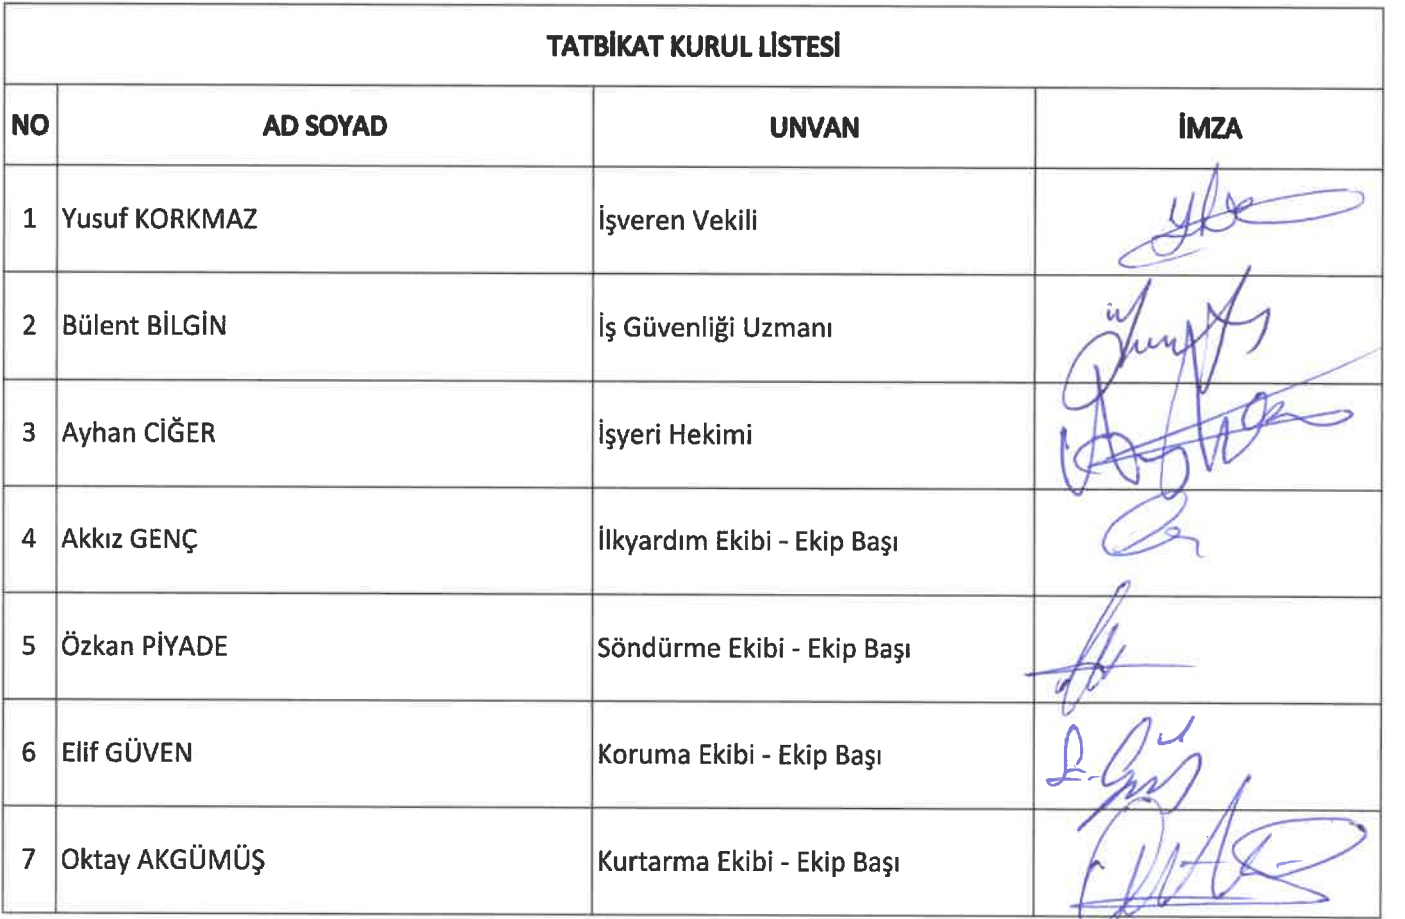 TATBİKAT KURUL LİSTESİ
NO AD SOYAD UNVAN İMZA
1 Yusuf KORKMAZ İşveren Vekili
2 Bülent BİLGİN İş Güvenliği Uzmanı
3 Ayhan CİĞER İşyeri Hekimi
4 Akkız GENÇ İlkyardım Ekibi - Ekip Başı
5 Özkan PİYADE Söndürme Ekibi - Ekip Başı
6 Elif GÜVEN Koruma Ekibi - Ekip Başı
7 Oktay AKGÜMÜŞ Kurtarma Ekibi - Ekip Başı